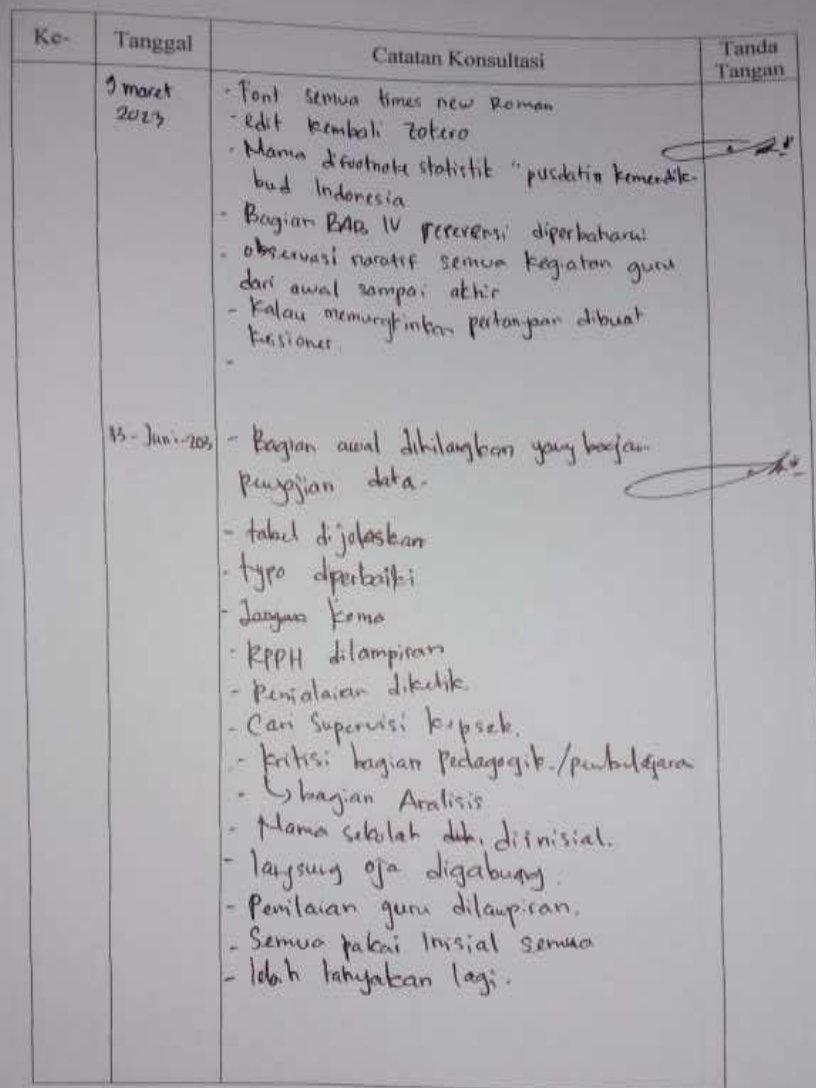 Ke- Tanggal Catatan Konsultasi Tanda Tangan
9 maret 2023
- Font semua times new Roman
- edit kembali zotero
- Nama difootnote statistik "pusdatin kemendik-
bud Indonesia
- Bagian BAB IV referensi diperbaharui
- observasi naratif semua kegiatan guru
dari awal sampai akhir
- Kalau memungkinkan pertanyaan dibuat
kuisioner.
-
13-Juni-203
- Bagian awal dihilangkan yang
penyajian data.
- tabel dijelaskan
- typo diperbaiki
- Jangan koma
- RPPH dilampiran
- Penialaian diketik.
- Cari Supervisi kepsek.
- kritisi bagian Pedagogik./
- ↳ bagian Analisis
- Nama sekolah diinisial.
- langsung aja digabung.
- Penilaian guru dilampiran.
- Semua pakai Inisial semua
- tanyakan lagi.